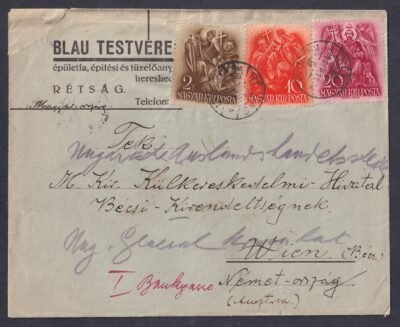 BLAU TESTVÉRE
épületfa, építési és tüzelőany
keresked
RÉTSÁG.
Telefon:
Magyarország
2
MAGYAR KIR. POSTA
10
MAGYAR KIR. POSTA
20
MAGYAR KIR. POSTA
Tek.
M. Kir. Külkereskedelmi-Hivatal
Bécsi-Kirendeltségnek.
Ung. General Konsulat
Wien (Bécs)
I Bankgasse
Német-ország
(Austria)